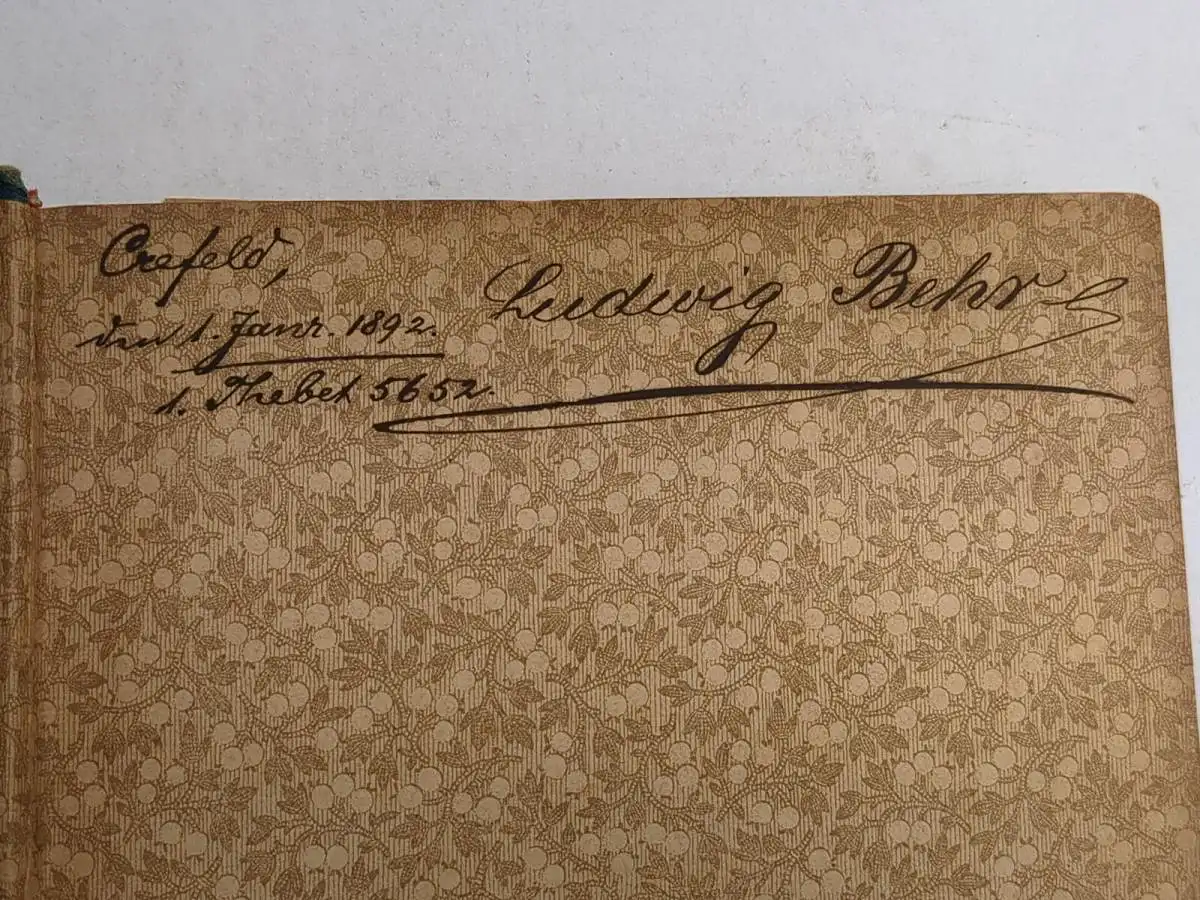 Crefeld,
den 1. Janr. 1892.
1. Thebet 5652.
Ludwig Behr